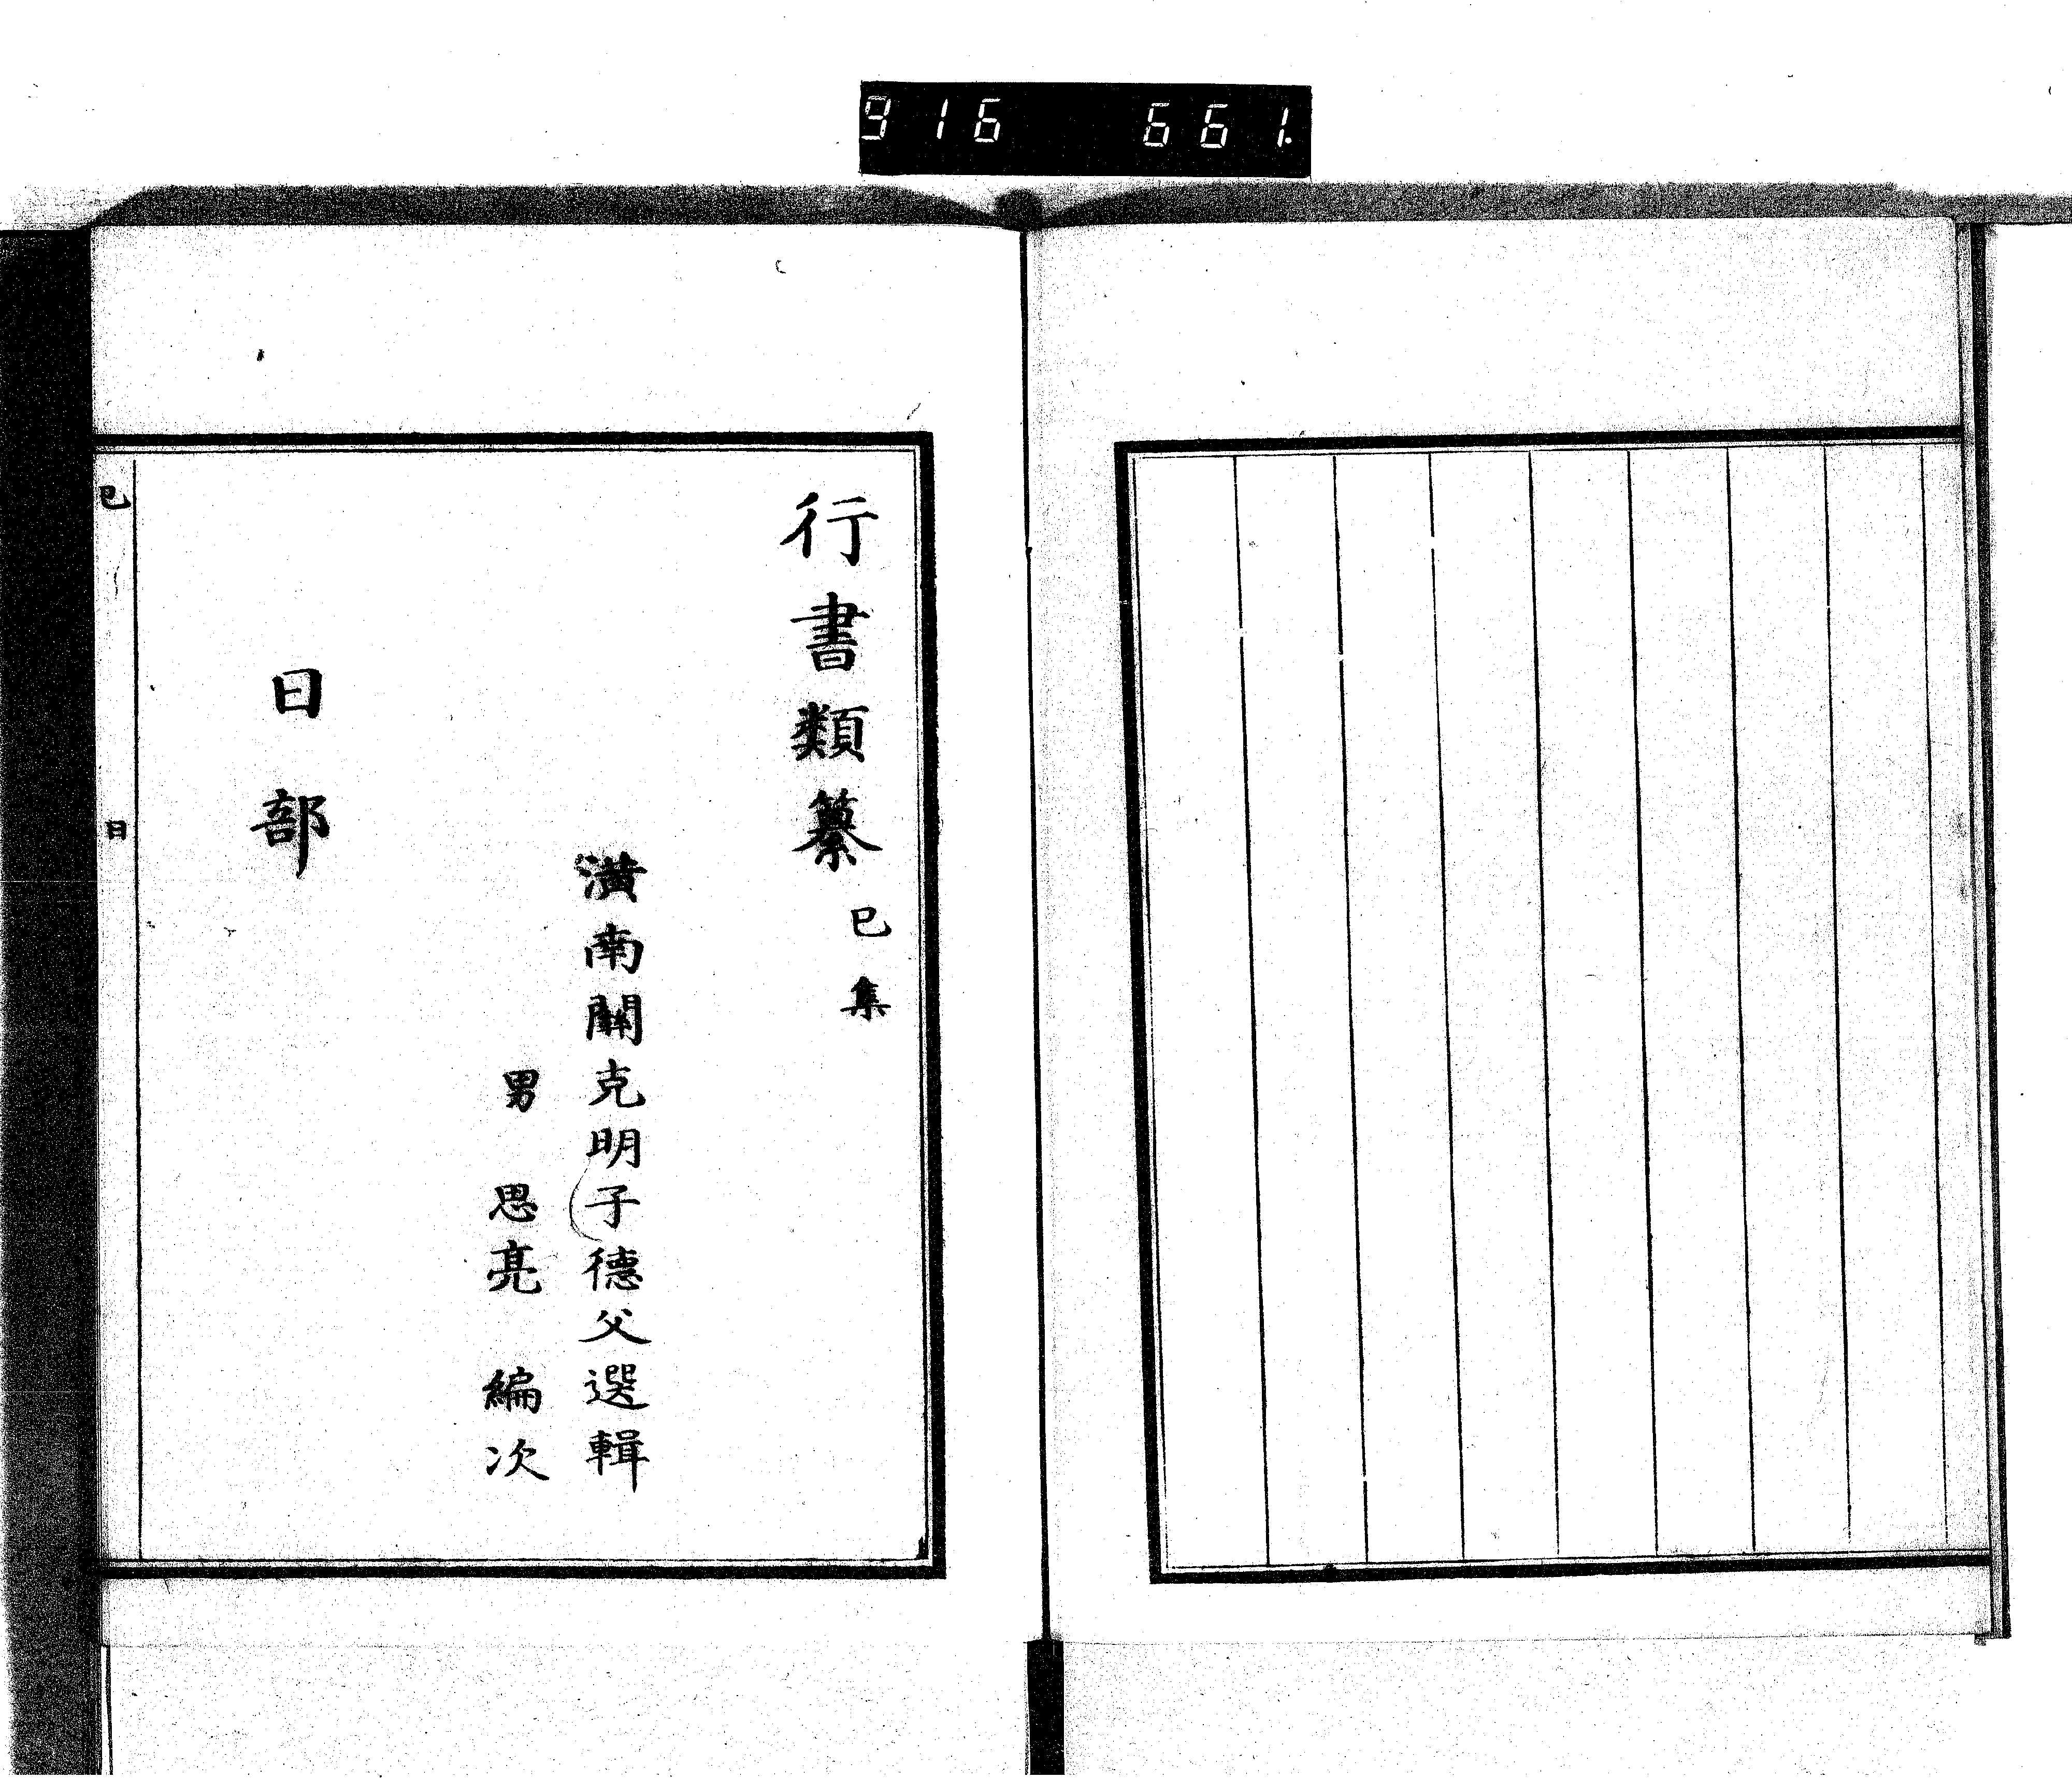 916 661.
行書類纂 巳集
潢南關克明子德父選輯
男 思亮 編次
日部
巳 日